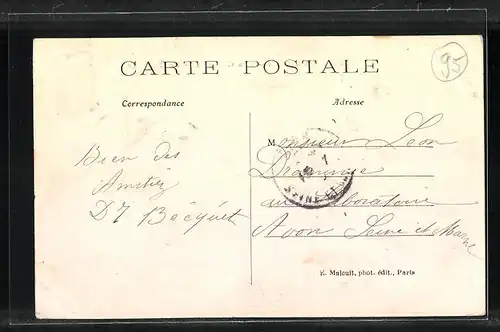 95
CARTE POSTALE
Correspondance
Adresse
Monsieur Léon
Bien des
Amitiés
au laboratoire
D7 Becquet
Avon Seine et Marne
E. Malcuit, phot. édit., Paris